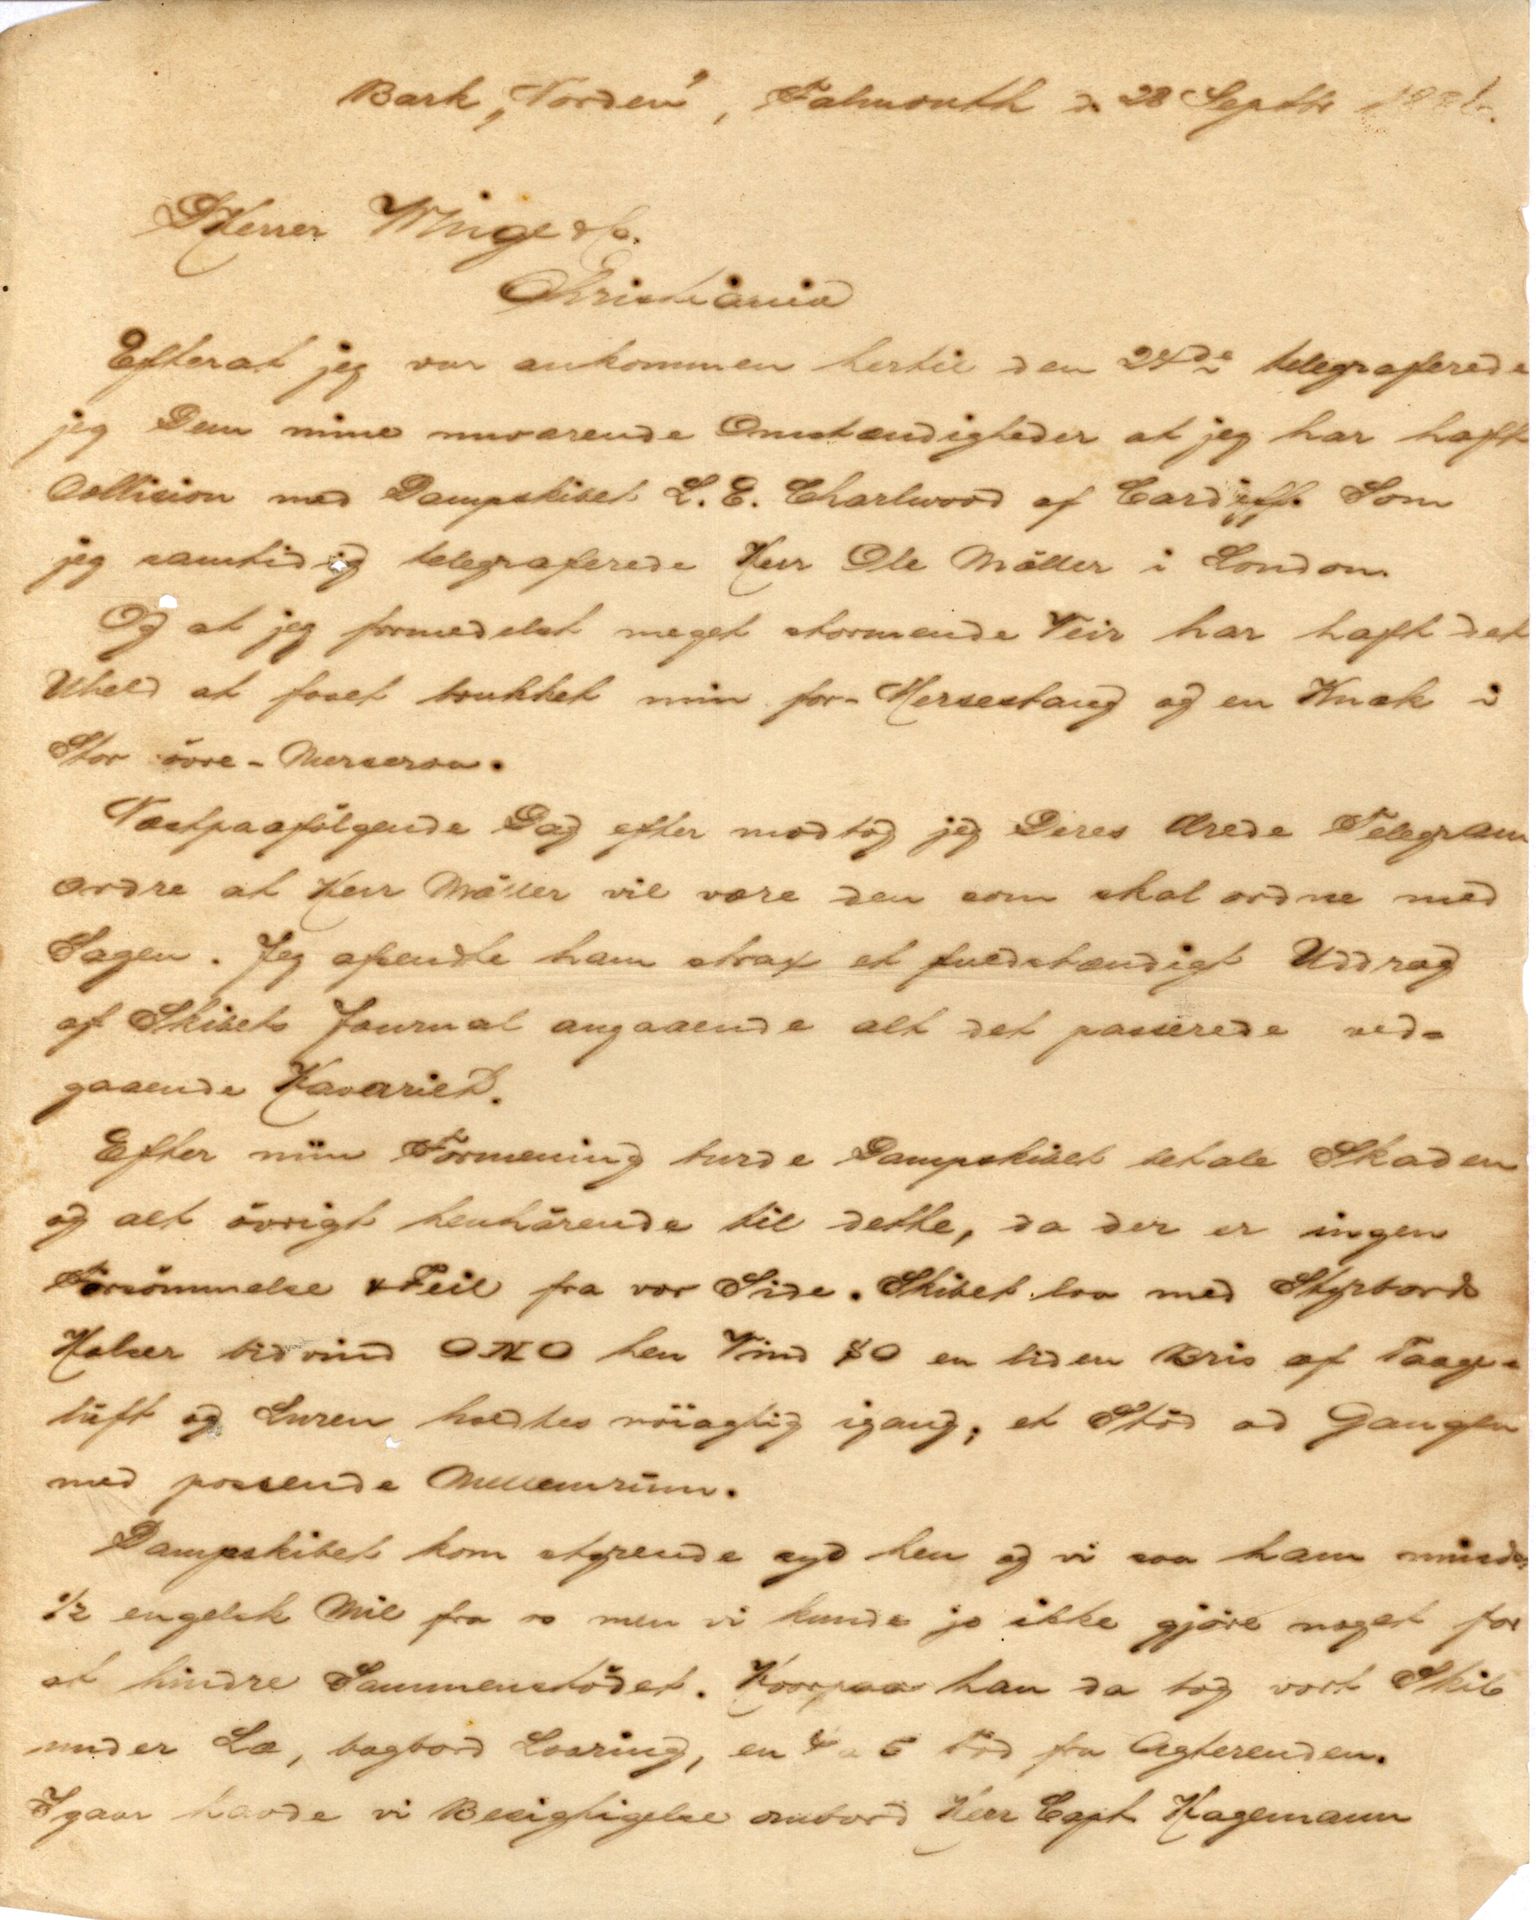 Bark „Norden”, Falmouth d 28 Septbr
DHerrer Winge & Co.
Christiania
Efterat jeg var ankommen hertil den 24de telegraferede
jeg Dem mine nuværende Omstændigheder at jeg har haft
Collision med Dampskibet L. E. Charlwood af Cardiff. Som
jeg samtidig telegraferede Herr Ole Möller i London.
Og at jeg formedelst meget stormende Veir har haft det
Uheld at faaet brukket min for-Mersestang og en Knæk i
Stor övre-Merseraa.
Næstpaafölgende Dag efter modtog jeg Deres ærede Telegram
ordre at Herr Möller vil være den som skal ordne med
Sagen. Jeg afsendte ham strax et fuldstændigt Uddrag
af Skibets Journal angaaende alt det passerede ved-
gaaende Havariet.
Efter min Formening burde Dampskibet betale Skaden
og alt övrigt henhörende til dette, da der er ingen
Forsömmelse & Feil fra vor Side. Skibet laa med Styrbords
Halser bidvind ONO hen Vind SO en liden Bris af Taage-
luft og Luren holdtes nöiagtig igang, et Stöd ad Gangen
med passende Mellemrum.
Dampskibet kom styrende syd hen og vi saa ham mindst
1/2 engelsk Mil fra os men vi kunde jo ikke gjöre noget for
at hindre Sammenstödet. Hvorpaa han da tog vort Skib
under Læ, bagbord Laaring, en 4 a 5 Föd fra Agterenden.
Igaar havde vi Besigtigelse ombord Herr Capt Hagemann